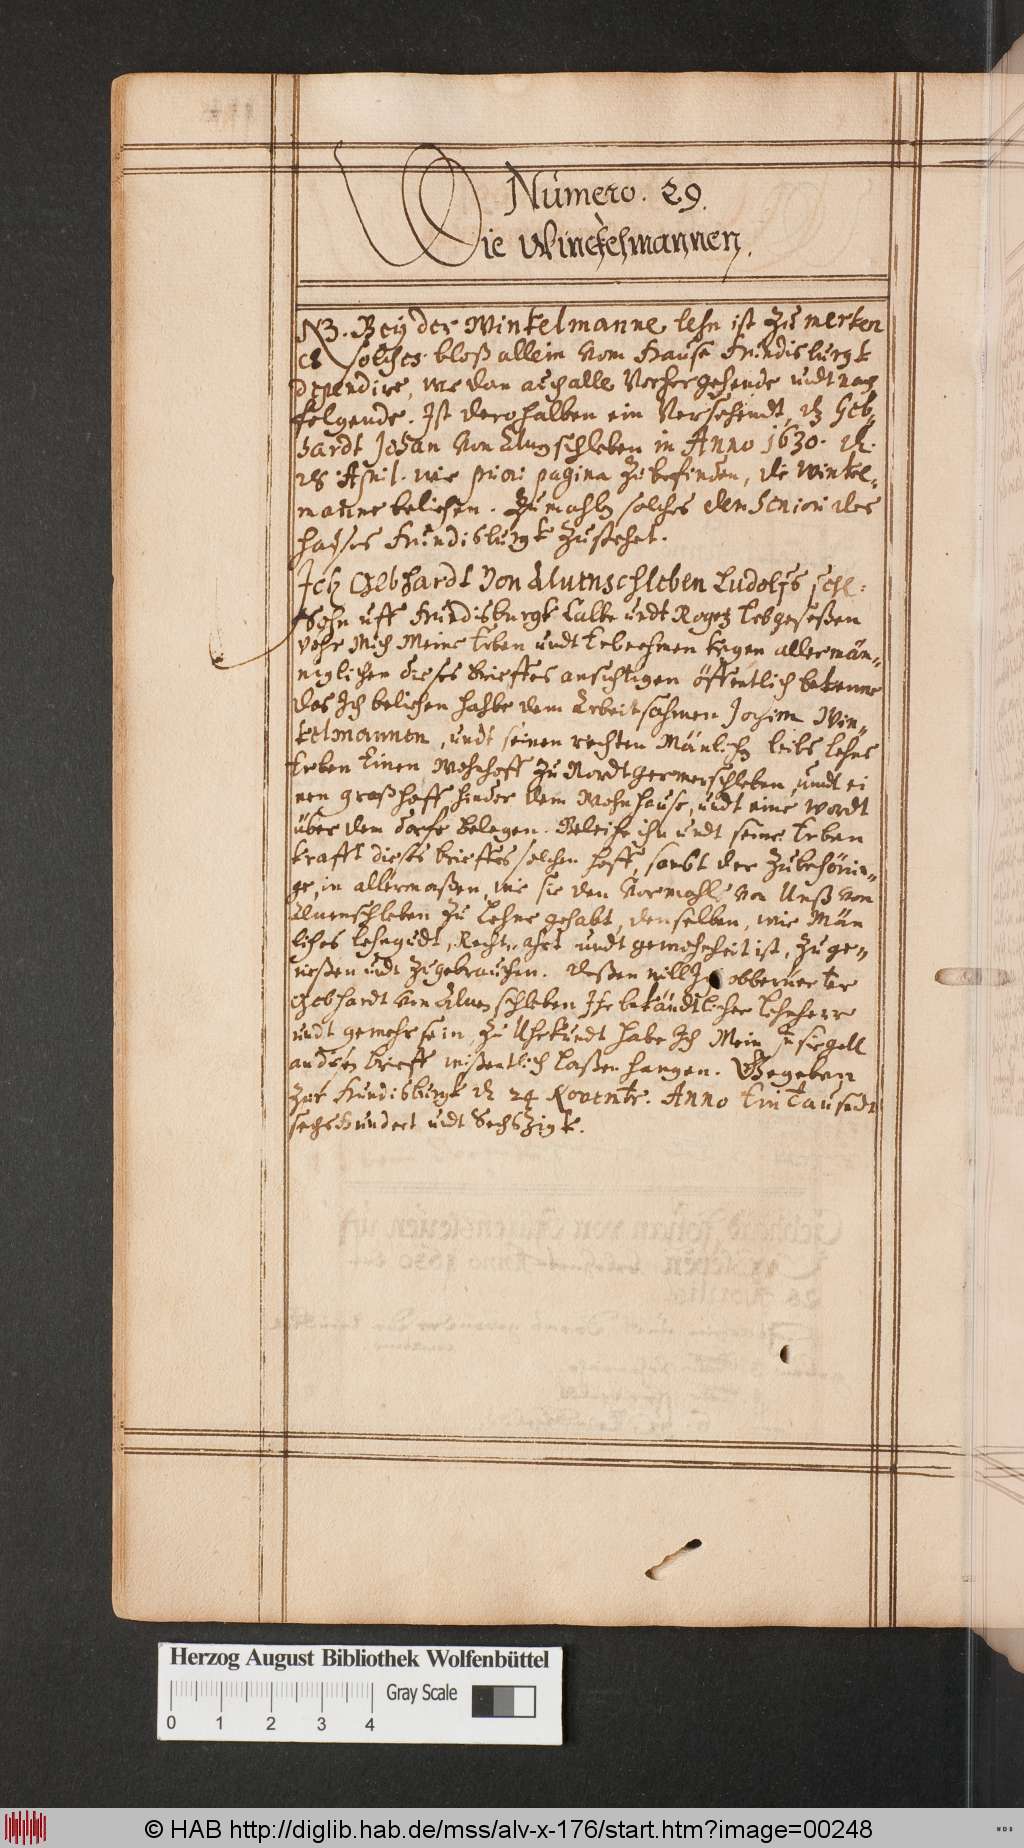 Numero. 29.
Die Winckelmannen.
NB. Bey der Winkelmanne lehn ist zu merken
es solches bloß allein vom Hause Hundisburgk
dependire, wie dan auch alle Vorhergehende undt nach
folgende. Ist derohalben ein Versehendt, dz Geb-
hardt Johan von Alvenschleben in Anno 1630. d.
28 April. wie priori pagina zu befinden, die Winkel-
manne beliehen. Zumahln solches dem Seniori des
Hauses Hundisburgk zustehet.
Ich Gebhardt Von Alvenschleben Ludolffs sehl:
Sohn uff Hundisburgk Calbe undt Rogetz Erbgeseßen
vohr Mich Meine Erben undt Erbnehmen kegen allermän-
niglichen dieses brieffes ansichtigen öffentlich bekenne
das Ich beliehen habbe dem Arbeitsahmen Jochim Win-
kelmannen, undt seinen rechten Mänlichen leibs lehns
Erben Einen Wohnhoff zu Nordtgermerschleben, undt ei
nen graßhoff hinder dem Wohnhause, undt eine wordt
über dem dorfe belegen. Beleihe ihn undt seine Erben
krafft dieses brieffes solchen hoff, sambt der Zubehörin-
ge, in allermaßen, wie sie den Vormahls von Unß von
Alvenschleben zu lehne gehabt, denselben, wie Män
liches lehngudt, Recht, ahrt undt gewohnheit ist, zu ge-
nießen undt zugebrauchen. deßen will Ich obberuerter
Gebhardt von Alvenschleben Ihr bekändtlicher Lehnherr
undt gewehr sein, zu Uhrkundt habe Ich Mein Insiegell
an disen brieff wißentlich laßen hangen. Gegeben
zur Hundisburgk d 24 Novembr. Anno Ein Tausendt
sechshundert undt Sechszigk.
Herzog August Bibliothek Wolfenbüttel
Gray Scale
0 1 2 3 4
© HAB http://diglib.hab.de/mss/alv-x-176/start.htm?image=00248